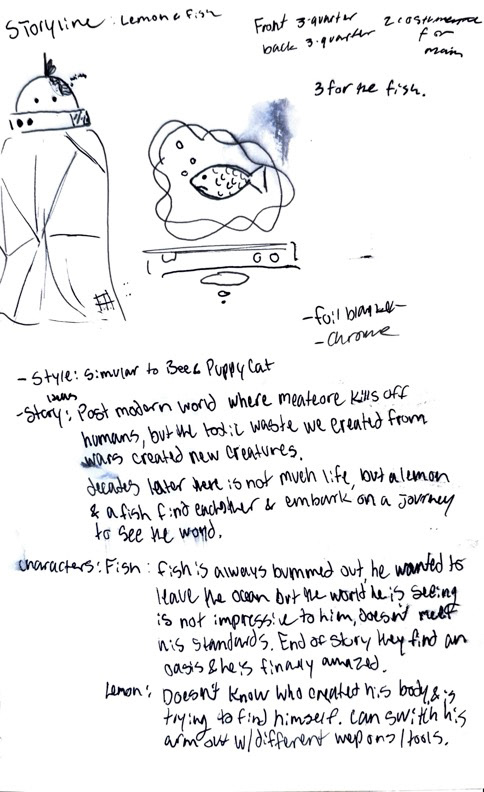 Storyline: Lemon & Fish
Front 3-quarter
back 3-quarter
2 costume
for
main
3 for the fish.
-foil blanket-
- Chrome
- Style: Simular to Bee & Puppy Cat
ideas
- Story: Post modern world where meateore kills off
humans, but the toxic waste we created from
wars created new creatures.
decates later there is not much life, but a lemon
& a fish find eachother & embark on a journey
to see the world.
characters: Fish: fish is always bummed out, he wanted to
leave the ocean but the world he is seeing
is not impressive to him, doesn't meet
his standards. End of story they find an
oasis & he is finally amazed.
Lemon: Doesn't know who created his body & is
trying to find himself. Can switch his
arm out w/ different wepons/tools.